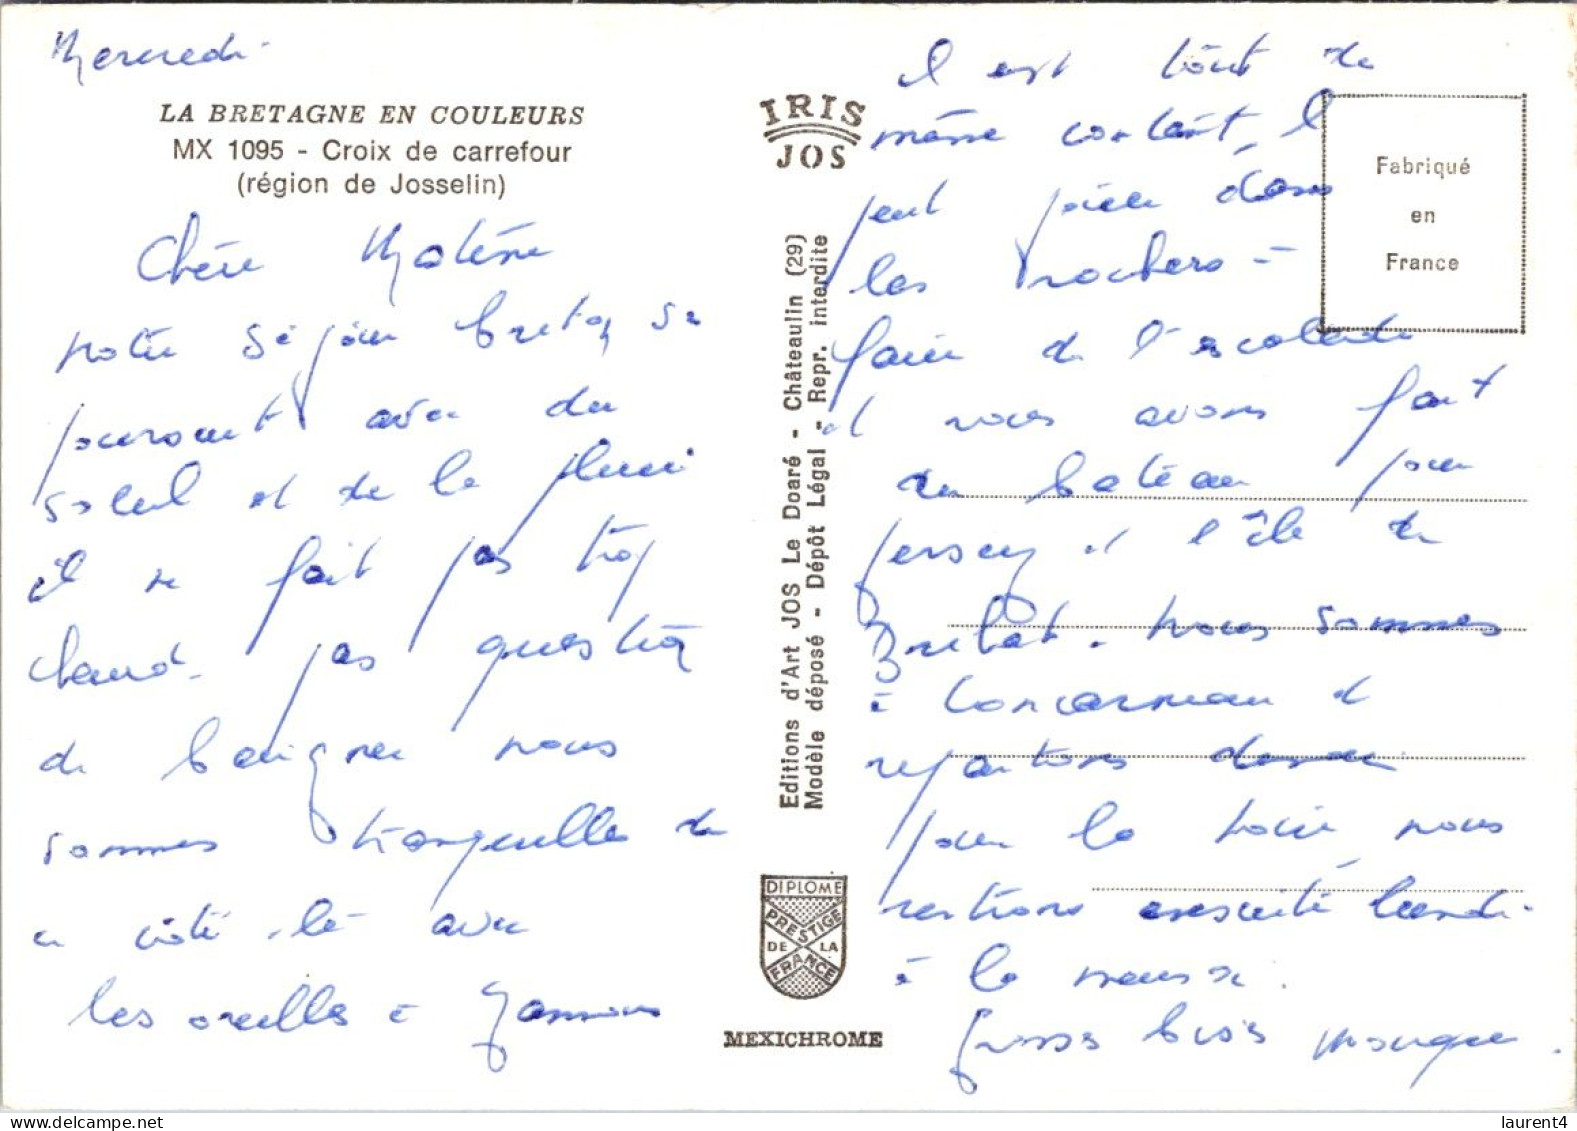 Mercredi
LA BRETAGNE EN COULEURS
MX 1095 - Croix de carrefour
(région de Josselin)
Chère
notre séjour breton se
poursuit avec du
soleil et de la pluie
il ne fait pas trop
chaud. pas question
de baigner nous
sommes tranquilles de
ce côté-là avec
les oreilles à
il est tout de
même content, il
peut jouer dans
les rochers -
faire de l'escalade
et nous avons fait
du bateau pour
Jersey et l'île de
Bréhat. nous sommes
à Concarneau et
repartons
pour la nous
rentrons ensuite lundi
à la
Grosses bises
IRIS
JOS
Fabriqué
en
France
Editions d'Art JOS Le Doaré - Châteaulin (29)
Modèle déposé - Dépôt Légal - Repr. interdite
DIPLOME
PRESTIGE
DE LA
FRANCE
MEXICHROME
laurent4